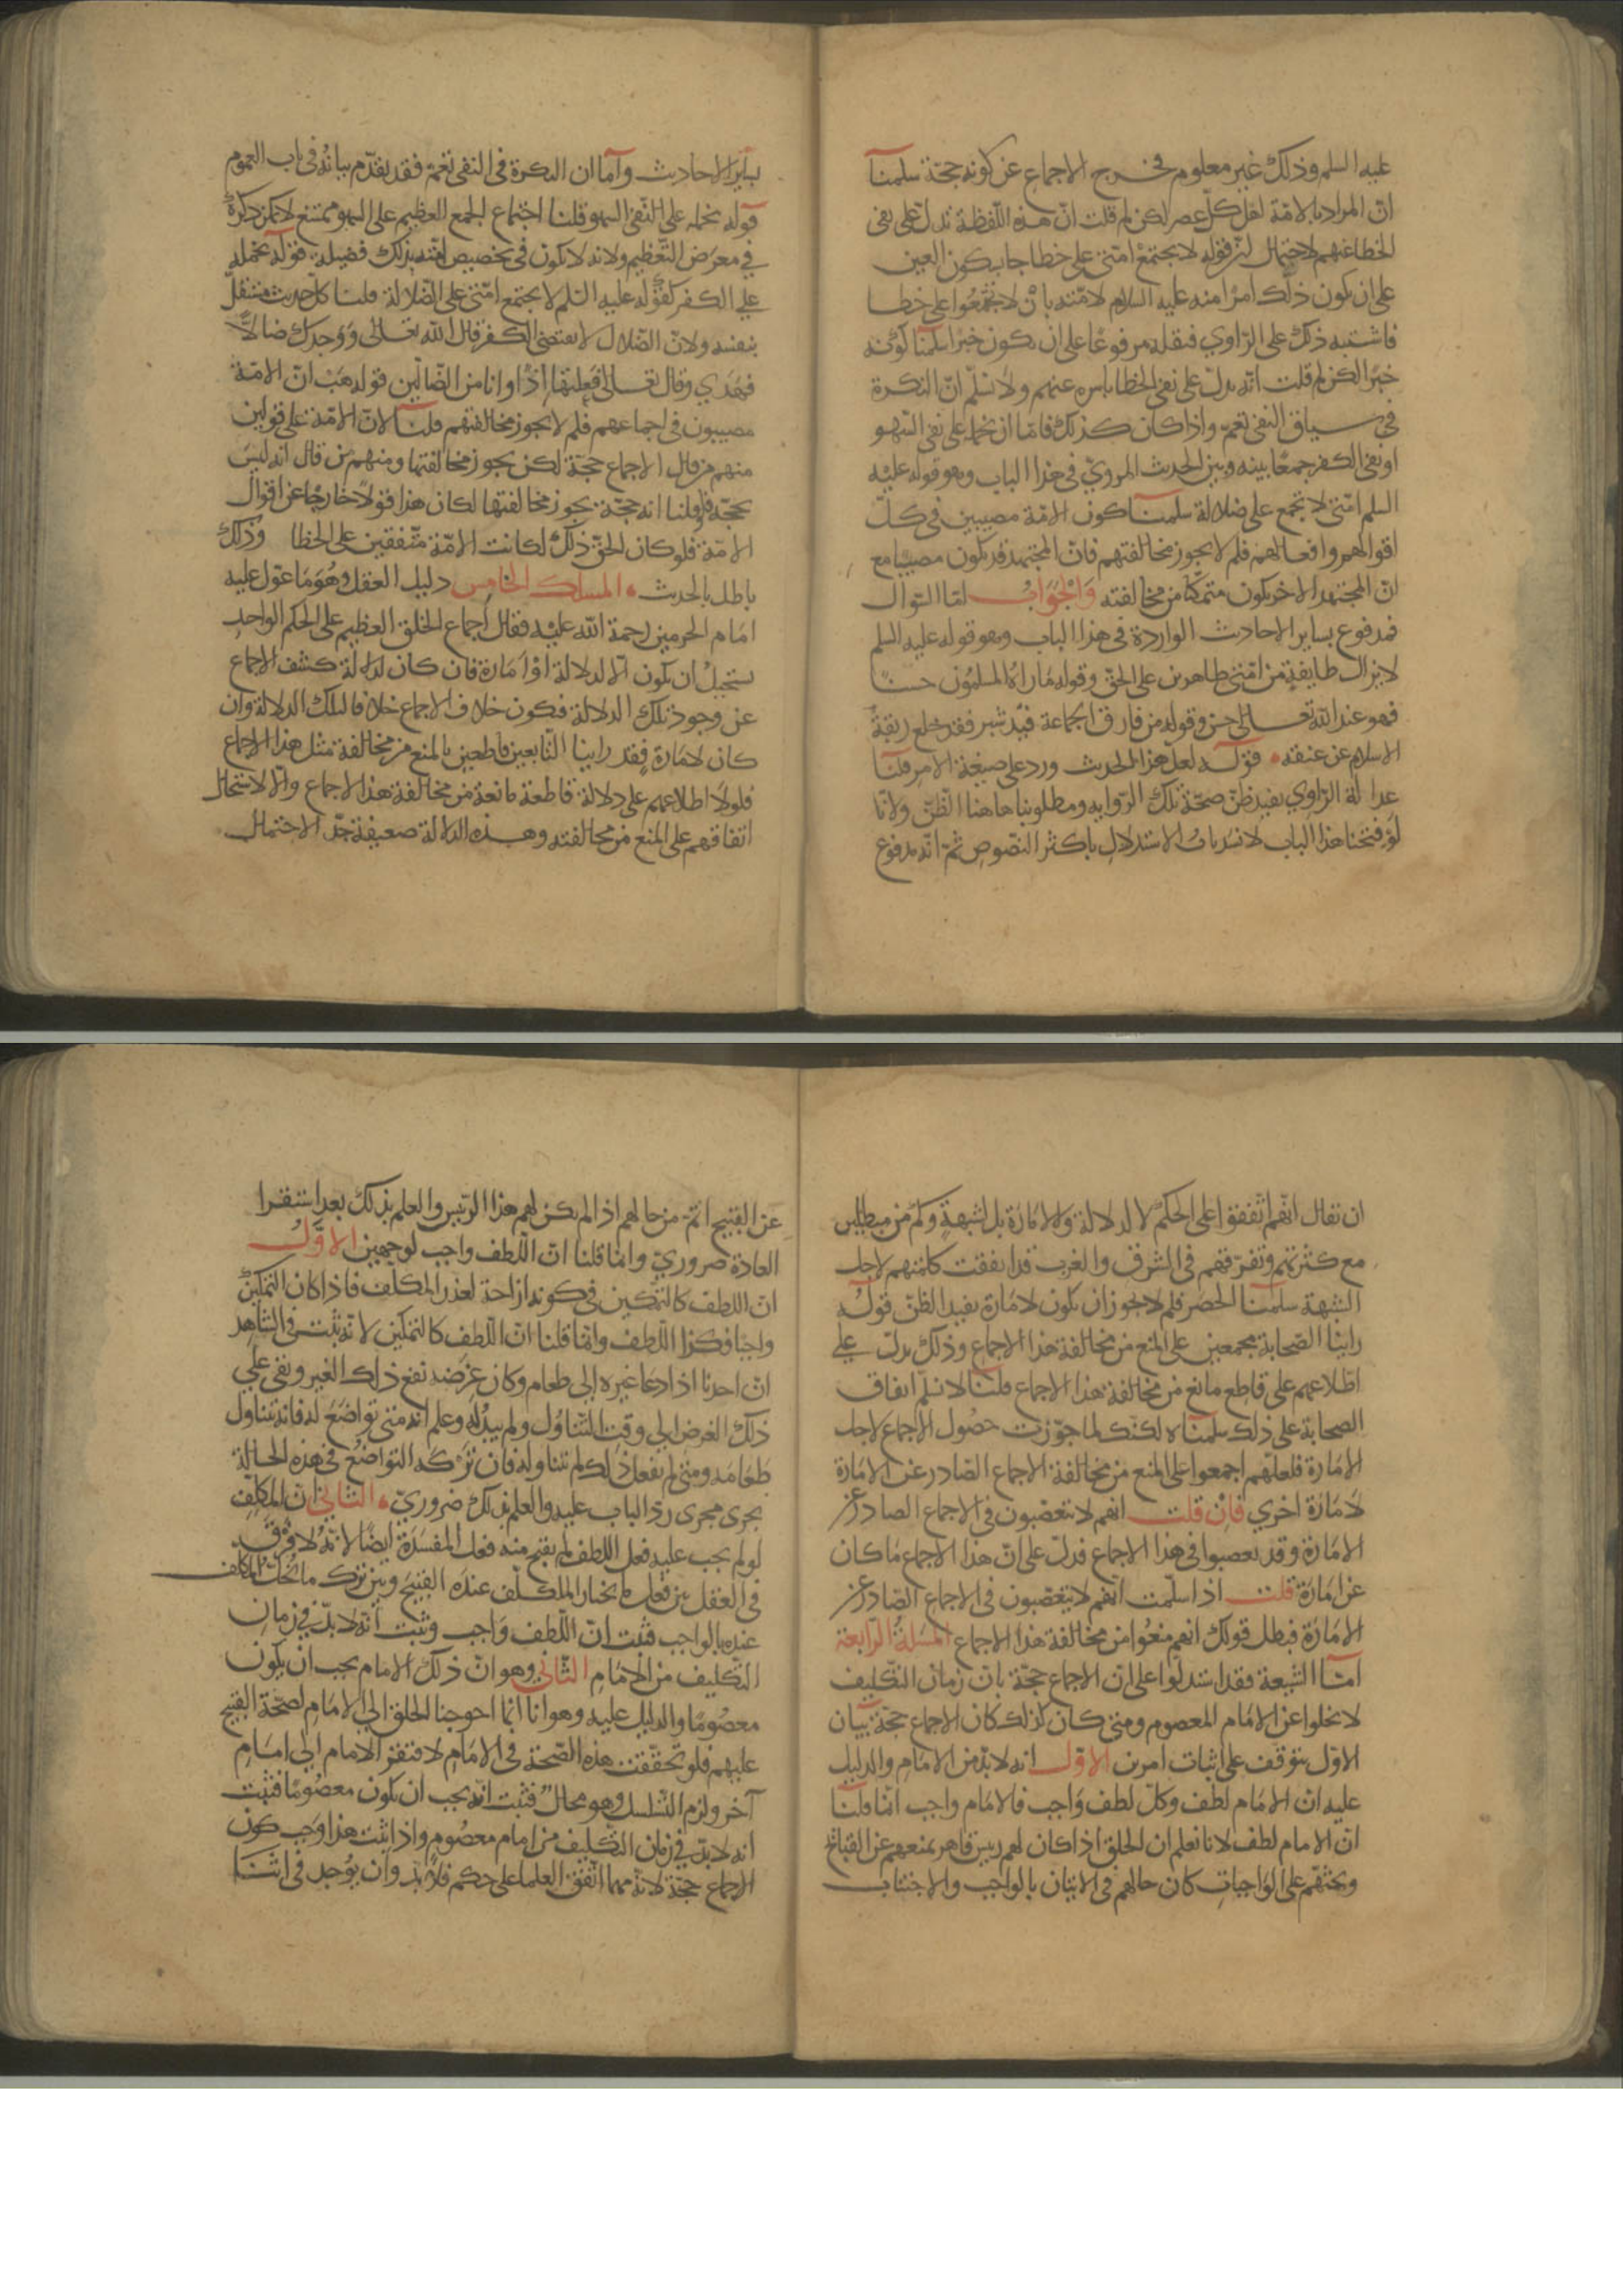 عليه السلم وذلك غير معلوم فخرج الاجماع عن كونه حجّة سلمنا
انّ المراد بالامّة اهل كلّ عصر لكن لم قلت انّ هذه اللفظة تدلّ على نفى
الخطا عنهم لاحتمال انّ قوله لا يجتمع امّتى على خطا جا بكون العين
على ان يكون ذلك امرًا منه عليه السلام لامّته بأن لا يجتمعوا على خطا
فاشتبه ذلك على الرّاوي فنقله مرفوعًا على ان يكون خبرًا سلمنا كونه
خبرًا لكن لم قلت انّه يدلّ على نفى الخطا باسره عنهم ولا نسلّم انّ النكرة
في سياق النفى تعمّ واذا كان كذلك فامّا ان نحمله على نفى السّهو
او نفى الكفر جمعًا بينه وبين الحديث المرويّ فى هذا الباب وهو قوله عليه
السلم امّتى لا تجمع على ضلالة سلمنا كون الامّة مصيبين فى كلّ
اقوالهم وافعالهم فلم لا يجوز مخالفتهم فانّ المجتهد قد يكون مصيبًا مع
انّ المجتهد الاخر يكون متمكّنًا من مخالفته وَالْجَوَابُ امّا السّوال
فمدفوع بساير الاحاديث الواردة فى هذا الباب وهو قوله عليه السلم
لا يزال طايفة من امّتى ظاهرين على الحقّ وقوله مَا راه المسلمُون حسنًا
فهو عند الله تعالى حسن وقوله من فارق الجماعة قيد شبر فقد خلع ربقة
الاسلام عن عنقه قوله لعلّ هذا الحديث ورد على صيغة الامر قلنا
عدالة الرّاوي يفيد ظنّ صحّة تلك الرّوايه ومطلوبنا هاهنا الظّنّ ولانّا
لو فتحنا هذا الباب لانسَدّ بابُ الاستدلال باكثر النصّوص ثمّ انّه مدفوع
بساير الاحاديث وامّا ان النكرة فى النفى تعمّ فقد تقدّم بيانُه فى باب العموم
قوله نحمله على النّفى السهو قلنا اجتماع الجمع العظيم على السهو ممتنع لا يمكن ذكره
في معرَض التّعظيم ولانه لا يكون فى تخصيص امّته بذلك فضيلة قوله نحمله
على الكفر لقوله عليه السّلم لا يجتمع امّتى على الضّلالة قلنا كلّ حديث مستقلّ
بنفسه ولانّ الضّلال لا يقتضى الكفر قال الله تعالى وَوَجدك ضالاًّ
فهَدي وقال تعالى فَعلتهَا اِذًا وانا من الضّالّين قوله هَبْ انّ الامّة
مصيبون فى اجماعهم فلم لا يجوز مخالفتهم قلنا لانّ الامّة على قولين
منهم من قال الاجماع حجّة لكن يجوز مخالفتها ومنهم من قال انه ليس
بحجّة فلو قلنا انه حجّة يجوز مخالفتها لكان هذا قولاً خارجًا عن اقوال
الامّة فلو كان الحقّ ذلك لكانت الامّة متّفقين على الخطا وذلك
باطل بالحديث المسلك الخامس دليل العقل وهُوَ مَا عوّل عليه
امَام الحرمين رحمة الله عليه فقال اجماع الخلق العظيم على الحكم الواحد
يستحيلُ ان يكون الّا لدلالة اوْ اَمَارة فان كان لدلالة كشف الاجماع
عن وجود تلك الدلالة فيكون خلاف الاجماع خلافا لتلك الدلالة وان
كان لامَارة فقد راينا التّابعين قاطعين بالمنع من مخالفة مثل هذا الاجماع
فلولا اطلاعهم على دلالة قاطعة مانعة من مخالفة هذا الاجماع والّا لاستحال
اتفاقهم على المنع من مخالفته وهذه الدلالة ضعيفة جدًّا لاحتمال
ان يقال انّهم اتّفقوا على الحكم لا لدلالة ولا لامَارة بل لشبهة وكم من مبطلين
مع كثرتهم وتفرّقهم فى الشرق والغرب قد اتفقت كلمتهم لاجل
الشبهة سلمنا الحصر فلم لا يجوز ان يكون لامَارة يفيد الظنّ قوله
راينا الصّحابة مجمعين على المنع من مخالفة هذا الاجماع وذلك يدلّ على
اطّلاعهم على قاطع مانع من مخالفة هذا الاجماع قلنا لا نسلّم اتفاق
الصحابة على ذلك سلمناه لكنّك لما جوّزت حصُول الاجماع لاجل
الامَارة فلعلّهم اجمعوا على المنع من مخالفة الاجماع الصّادر عن الامَارة
لامَارة اخري فانْ قلت انهم لا يتعصّبون فى الاجماع الصادر عن
الامَارة وقد تعصبوا فى هذا الاجماع فدلّ على انّ هذا الاجماع مَا كان
عن امَارة قلت اذا سلّمت انّهم لا يتعصّبون فى الاجماع الصّادر عن
الامَارة فبطل قولك انهم منعُوا من مخالفة هذا الاجماع المسَلة الرّابعة
امّا الشيعة فقد استدلّوا على انّ الاجماع حجّة بانّ زمان التّكليف
لا يخلوا عن الامَام المعصوم ومتى كان كذلك كان الاجماع حجّة بيَان
الاوّل يتوقف على اثبات امرين الاوّل انه لا بدّ من الامَامِ والدليل
عليه انّ الامَام لطف وكلّ لطف وَاجب فالامَام واجب امّا قلنا
انّ الامام لطف لانا نعلم ان الخلق اذا كان لهم ريس قاهر يمنعهم عن القبائح
ويحثّهم على الوَاجبات كان حالهم فى الاتيان بالواجب والاجتناب
عن القبيح اتمّ من حالهم اذا لم يكن لهم هذا الرّيس والعلم بذلك بعد استقرا
العادة ضروريّ وانما قلنا انّ اللّطف واجب لوجهين الاوّلُ
انّ اللطف كالتمكين في كونه ازاحة لعذر المكلّف فاذا كان التمكين
واجبًا فكذا اللّطف وانّما قلنا انّ اللّطف كالتمكين لانّه يثبت فى الشاهد
انّ احدنا اذا دعا غيره الى طعام وكان غرَضه نفع ذلك الغير وبقى على
ذلك الغرض الى وقت التّناوُل ولم يبدُ له وعلم انه متى تواضَعَ له فانه تناول
طعَامَه ومتى لم يفعل ذلك لم يتناوله فان تَرْكَه التواضُعَ فى هذه الحالة
يجرى مجرى ردّ الباب عليه والعلم بذلك ضروريّ الثانى انّ المكلِّف
لو لم يجب عليه فعل اللطف لم يقبح منه فعل المفسَدة ايضًا لانّهُ لا فرق
فى العقل بين فعل مَا يختار المكلّف عنده القبيح وبين ترك ما يُخلّ المكلف
عنده بالواجب فثبت انّ اللّطف وَاجب وثبت انّه لا بدّ فى زمان
التّكليف من الامَامِ الثّانى وهو انّ ذلك الامام يجب ان يكون
معصُومًا والدليل عليه وهو انا انّما احوجنا الخلق الى الامَام لصحّة القبيح
عليهم فلو تحقّقت هذه الصّحّة فى الامَام لافتقر الامام الى امَام
آخر ولزم التّسلسل وهو محالٌ فثبت انّه يجب ان يكون معصُومًا فثبت
انه لا بدّ في زمان التّكليف من امام معصُوم واذا ثبت هذا وَجب كون
الاجماع حجّة لانّه مهما اتّفق العلما على حكم فلا بدّ وان يوُجد فى اثنا